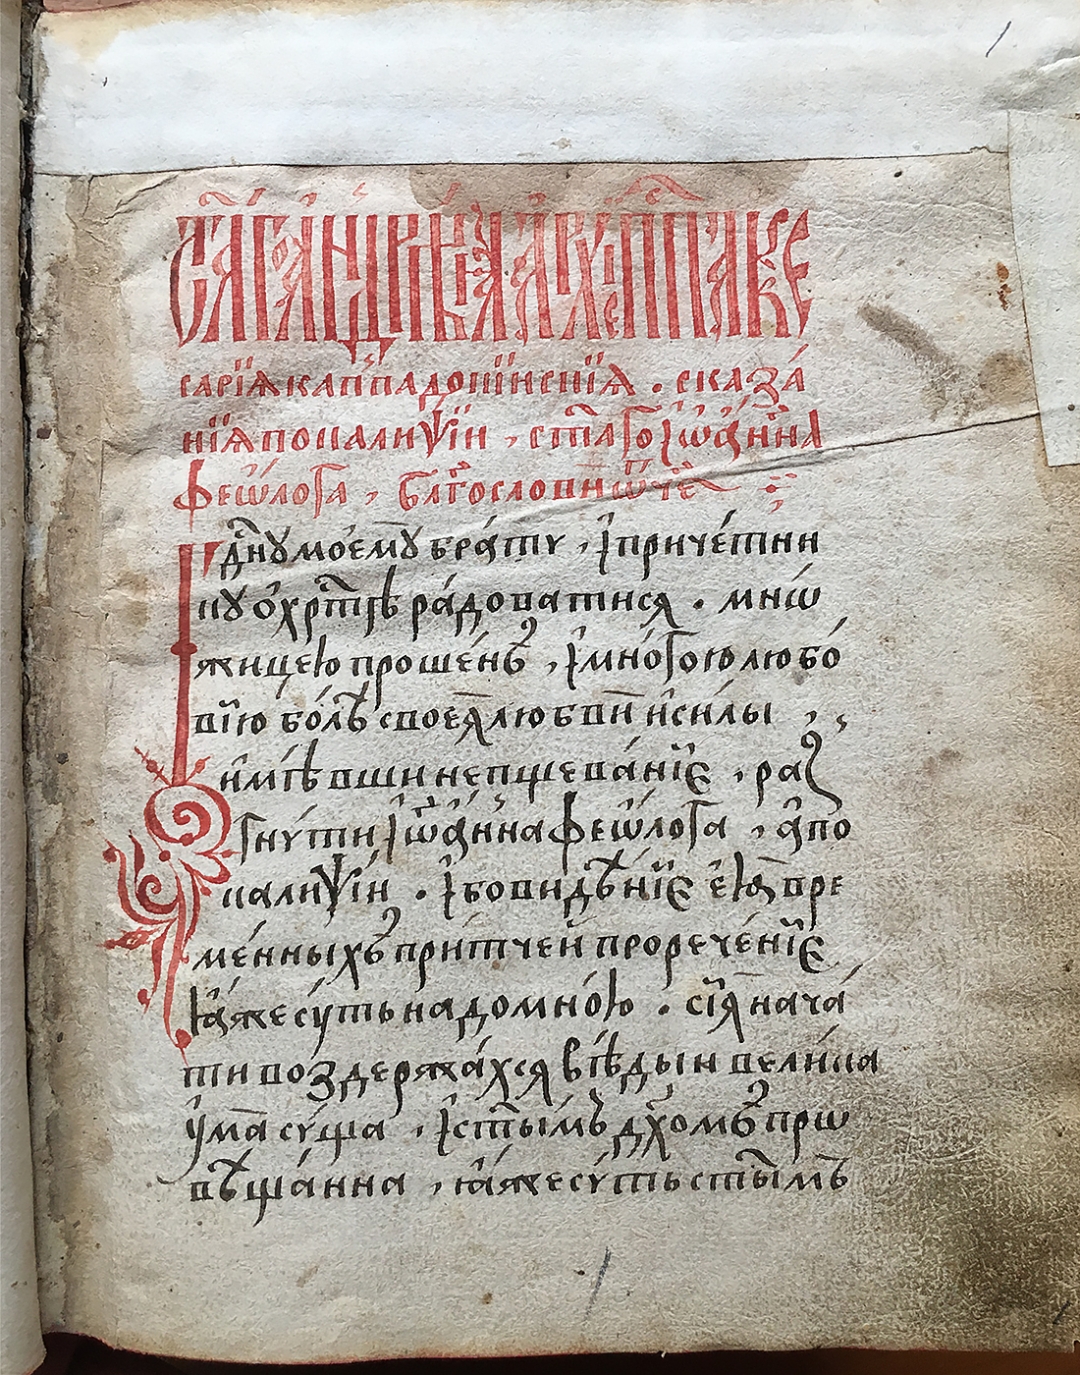 ст҃а́го а҆ндрѣ́а а҆рхїепⷭ҇па ке
сарі́ѧ каппадокі́искїѧ . сказа́
нїѧ по калиѱі́и , ст҃а́гѡ і҆ѡа́нна
феѡ́лога , благосло́ви ѿч҃е
гдⷭ҇нꙋ моемꙋ̀ бра́тꙋ , і҆ причетни
кꙋ ѻ҆ хрⷭ҇тѣ ра́доватисѧ . мнѡ́
жицею проше́нъ , і҆ мно́гою любо́
вїю бо́лѣ своеѧ̀ любвѝ и҆ си́лы
и҆мѣ́вши непщева́нїе , раз
гнꙋ́ти і҆ѡа́нна феѡ́лога , а҆по
калиѱі́и . і҆бо ви́дѣнїе є҆ꙗ҆̀ вре
ме́нныхъ при́тчей прорече́нїе
ꙗ҆́же сꙋть надо мно́ю . сїѧ̀ нача́
ти воздержа́хсѧ вѣ́дый вели́ка
ᲂу҆ма̀ сꙋ́ща , і҆ ст҃ы́мъ дх҃омъ прѡ
вѣща́нна , ꙗ҆́же сꙋ́ть ст҃ы́мъ